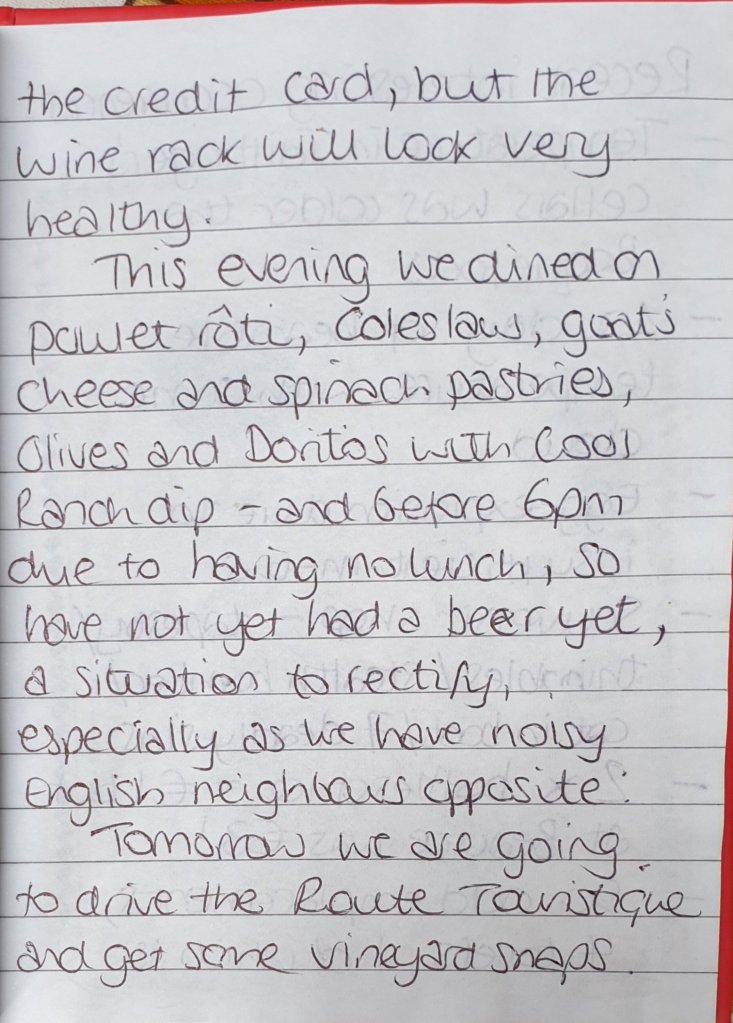 the credit card, but the
wine rack will look very
healthy.
This evening we dined on
poulet rôti, coleslaw, goat's
cheese and spinach pastries,
olives and Doritos with Cool
Ranch dip - and before 6pm
due to having no lunch, so
have not yet had a beer yet,
a situation to rectify,
especially as we have noisy
English neighbours opposite.
Tomorrow we are going
to drive the Route Touristique
and get some vineyard snaps.